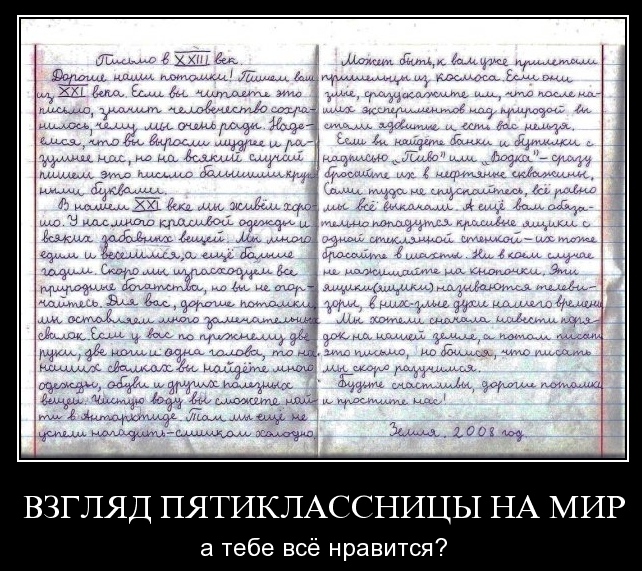 Письмо в XXIII век.
Дорогие наши потомки! Пишем вам
из XXI века. Если вы читаете это
письмо, значит человечество сохра-
нилось, чему мы очень рады. Наде-
емся, что вы выросли мудрее и ра-
зумнее нас, но на всякий случай
пишем это письмо большими круп-
ными буквами.
В нашем XXI веке мы живём хоро-
шо. У нас много красивой одежды и
всяких забавных вещей. Мы много
едим и веселимся, а ещё больше
гадим. Скоро мы израсходуем все
природные богатства, но вы не огор-
чайтесь. Для вас, дорогие потомки,
мы оставляем много замечательных
свалок. Если у вас по прежнему две
руки, две ноги и одна голова, то на
наших свалках вы найдёте много
одежды, обуви и других полезных
вещей. Чистую воду вы сможете най-
ти в Антарктиде. Там мы ещё не
успели нагадить – слишком холодно
Может быть, к вам уже прилетали
пришельцы из космоса. Если они
злые, сразу скажите им, что после на-
ших экспериментов над природой вы
стали ядовитые и есть вас нельзя.
Если вы найдёте банки и бутылки с
надписью „Пиво" или „Водка" – сразу
бросайте их в нефтяные скважины,
Сами туда не спускайтесь, всё равно
мы всё выкачали. А ещё вам обяза-
тельно попадутся красивые ящики с
одной стеклянной стенкой – их тоже
бросайте в шахты. Ни в коем случае
не нажимайте на кнопочки. Эти
ящики (ящики) называются телеви-
зоры, в них – злые духи нашего времени
Мы хотели сначала навести поря-
док на нашей земле, а потом писать
это письмо, но боимся, что писать
мы скоро разучимся.
Будьте счастливы, дорогие потомки
и простите нас!
Земля. 2008 год
ВЗГЛЯД ПЯТИКЛАССНИЦЫ НА МИР
а тебе всё нравится?